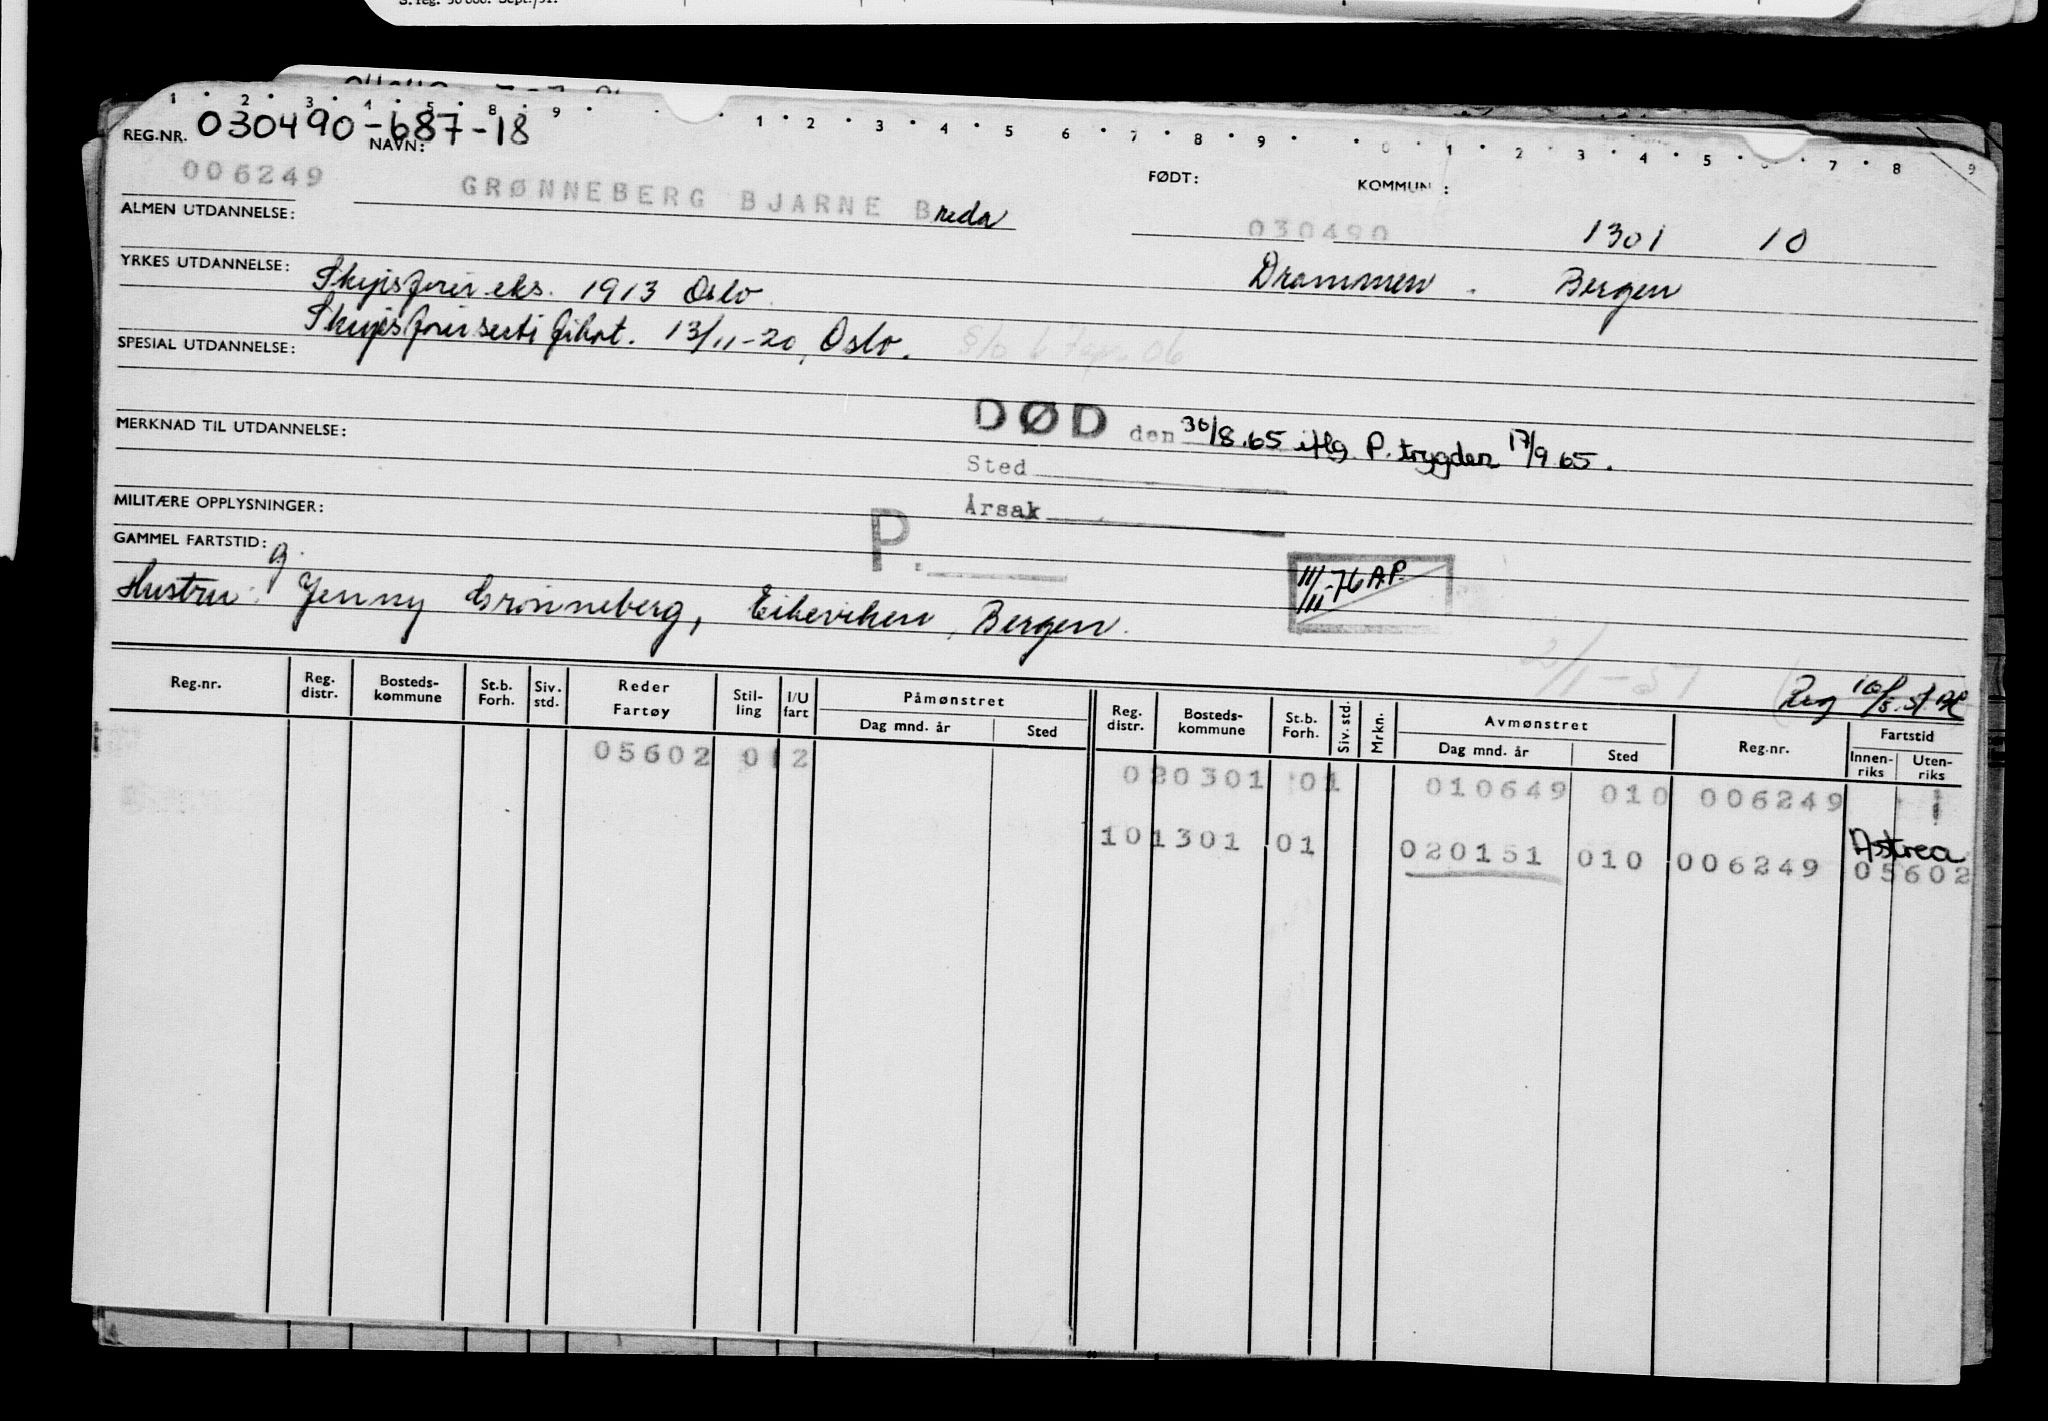 S. reg. 50 000. Sept./51.
1 2 3 4 5 8 9 1 2 3 4 5 6 7 8 9 0 1 2 3 4 5 7 8 9
REG.NR. 030490-687-18
NAVN: FØDT: KOMMUN :
006249 GRØNNEBERG BJARNE Breda 030490 1301 10
ALMEN UTDANNELSE: Drammen. Bergen
YRKES UTDANNELSE: Skipsfører eks. 1913 Oslo
Skipsførersertifikat. 13/11-20, Oslo.
SPESIAL UTDANNELSE:
DØD den 30/8.65 iflg. P. trygden 17/9 65.
MERKNAD TIL UTDANNELSE:
Sted
MILITÆRE OPPLYSNINGER:
Årsak
P.
GAMMEL FARTSTID:
III/II-76 A.P.
Hustru: g. Jenny Grønneberg, Eikeviken, Bergen.
2/1-51
Reg 10/8.51
Reg.nr. Reg. distr. Bosteds- kommune St.b. Forh. Siv. std. Reder Fartøy Stil- ling I/U fart Påmønstret Dag mnd. år Sted Reg. distr. Bosteds- kommune St.b. Forh. Siv. std. Mrkn. Avmønstret Dag mnd. år Sted Reg.nr. Fartstid Innen- riks Uten- riks
05602 012 020301 01 010649 010 006249
Astrea
101301 01 020151 010 006249 05602